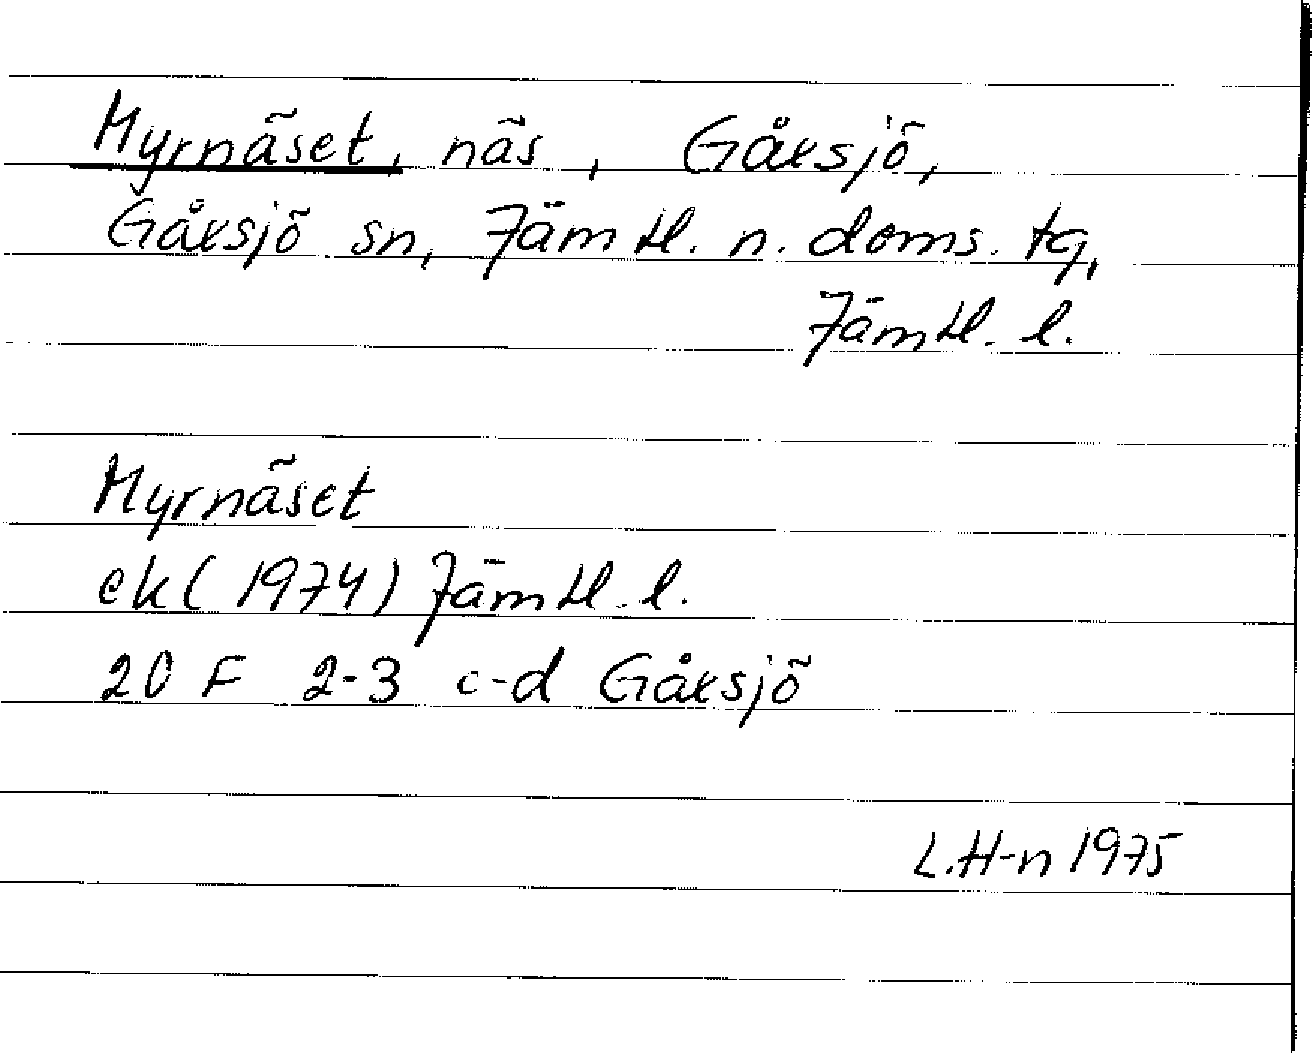 Myrnäset, näs, Gåxsjö,
Gåxsjö sn, Jämtl. n. doms. tg,
Jämtl. l.
Myrnäset
ek (1974) Jämtl. l.
20 F 2-3 c-d Gåxsjö
L.H-n 1975